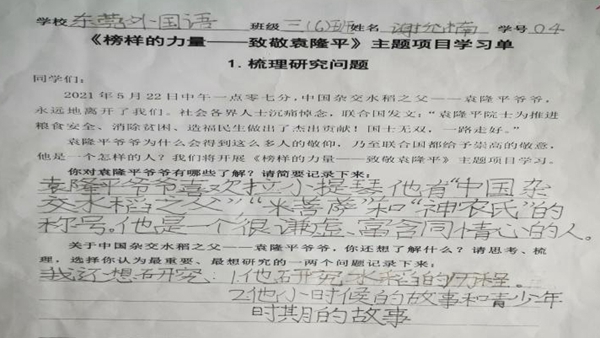 学校东莞外国语 班级三(6)班姓名谢 楠 学号04
《榜样的力量——致敬袁隆平》主题项目学习单
1.梳理研究问题
同学们:
2021年5月22日中午一点零七分,中国杂交水稻之父——袁隆平爷爷,
永远地离开了我们。社会各界人士沉痛悼念,联合国发文:“袁隆平院士为推进
粮食安全、消除贫困、造福民生做出了杰出贡献!国士无双,一路走好。”
袁隆平爷爷为什么会得到这么多人的敬仰,乃至联合国都给予崇高的敬意,
他是一个怎样的人?我们将开展《榜样的力量——致敬袁隆平》主题项目学习。
你对袁隆平爷爷有哪些了解?请简要记录下来:
袁隆平爷爷喜欢拉小提琴,他有“中国杂
交水稻之父”“米菩萨”和“神农氏”的
称号。他是一个很谦虚、富含同情心的人。
关于中国杂交水稻之父——袁隆平爷爷,你还想了解什么?请思考、梳
理,选择你认为最重要、最想研究的一两个问题记录下来:
我还想研究:1.他研究水稻的历程。
2.他小时候的故事和青少年
时期的故事